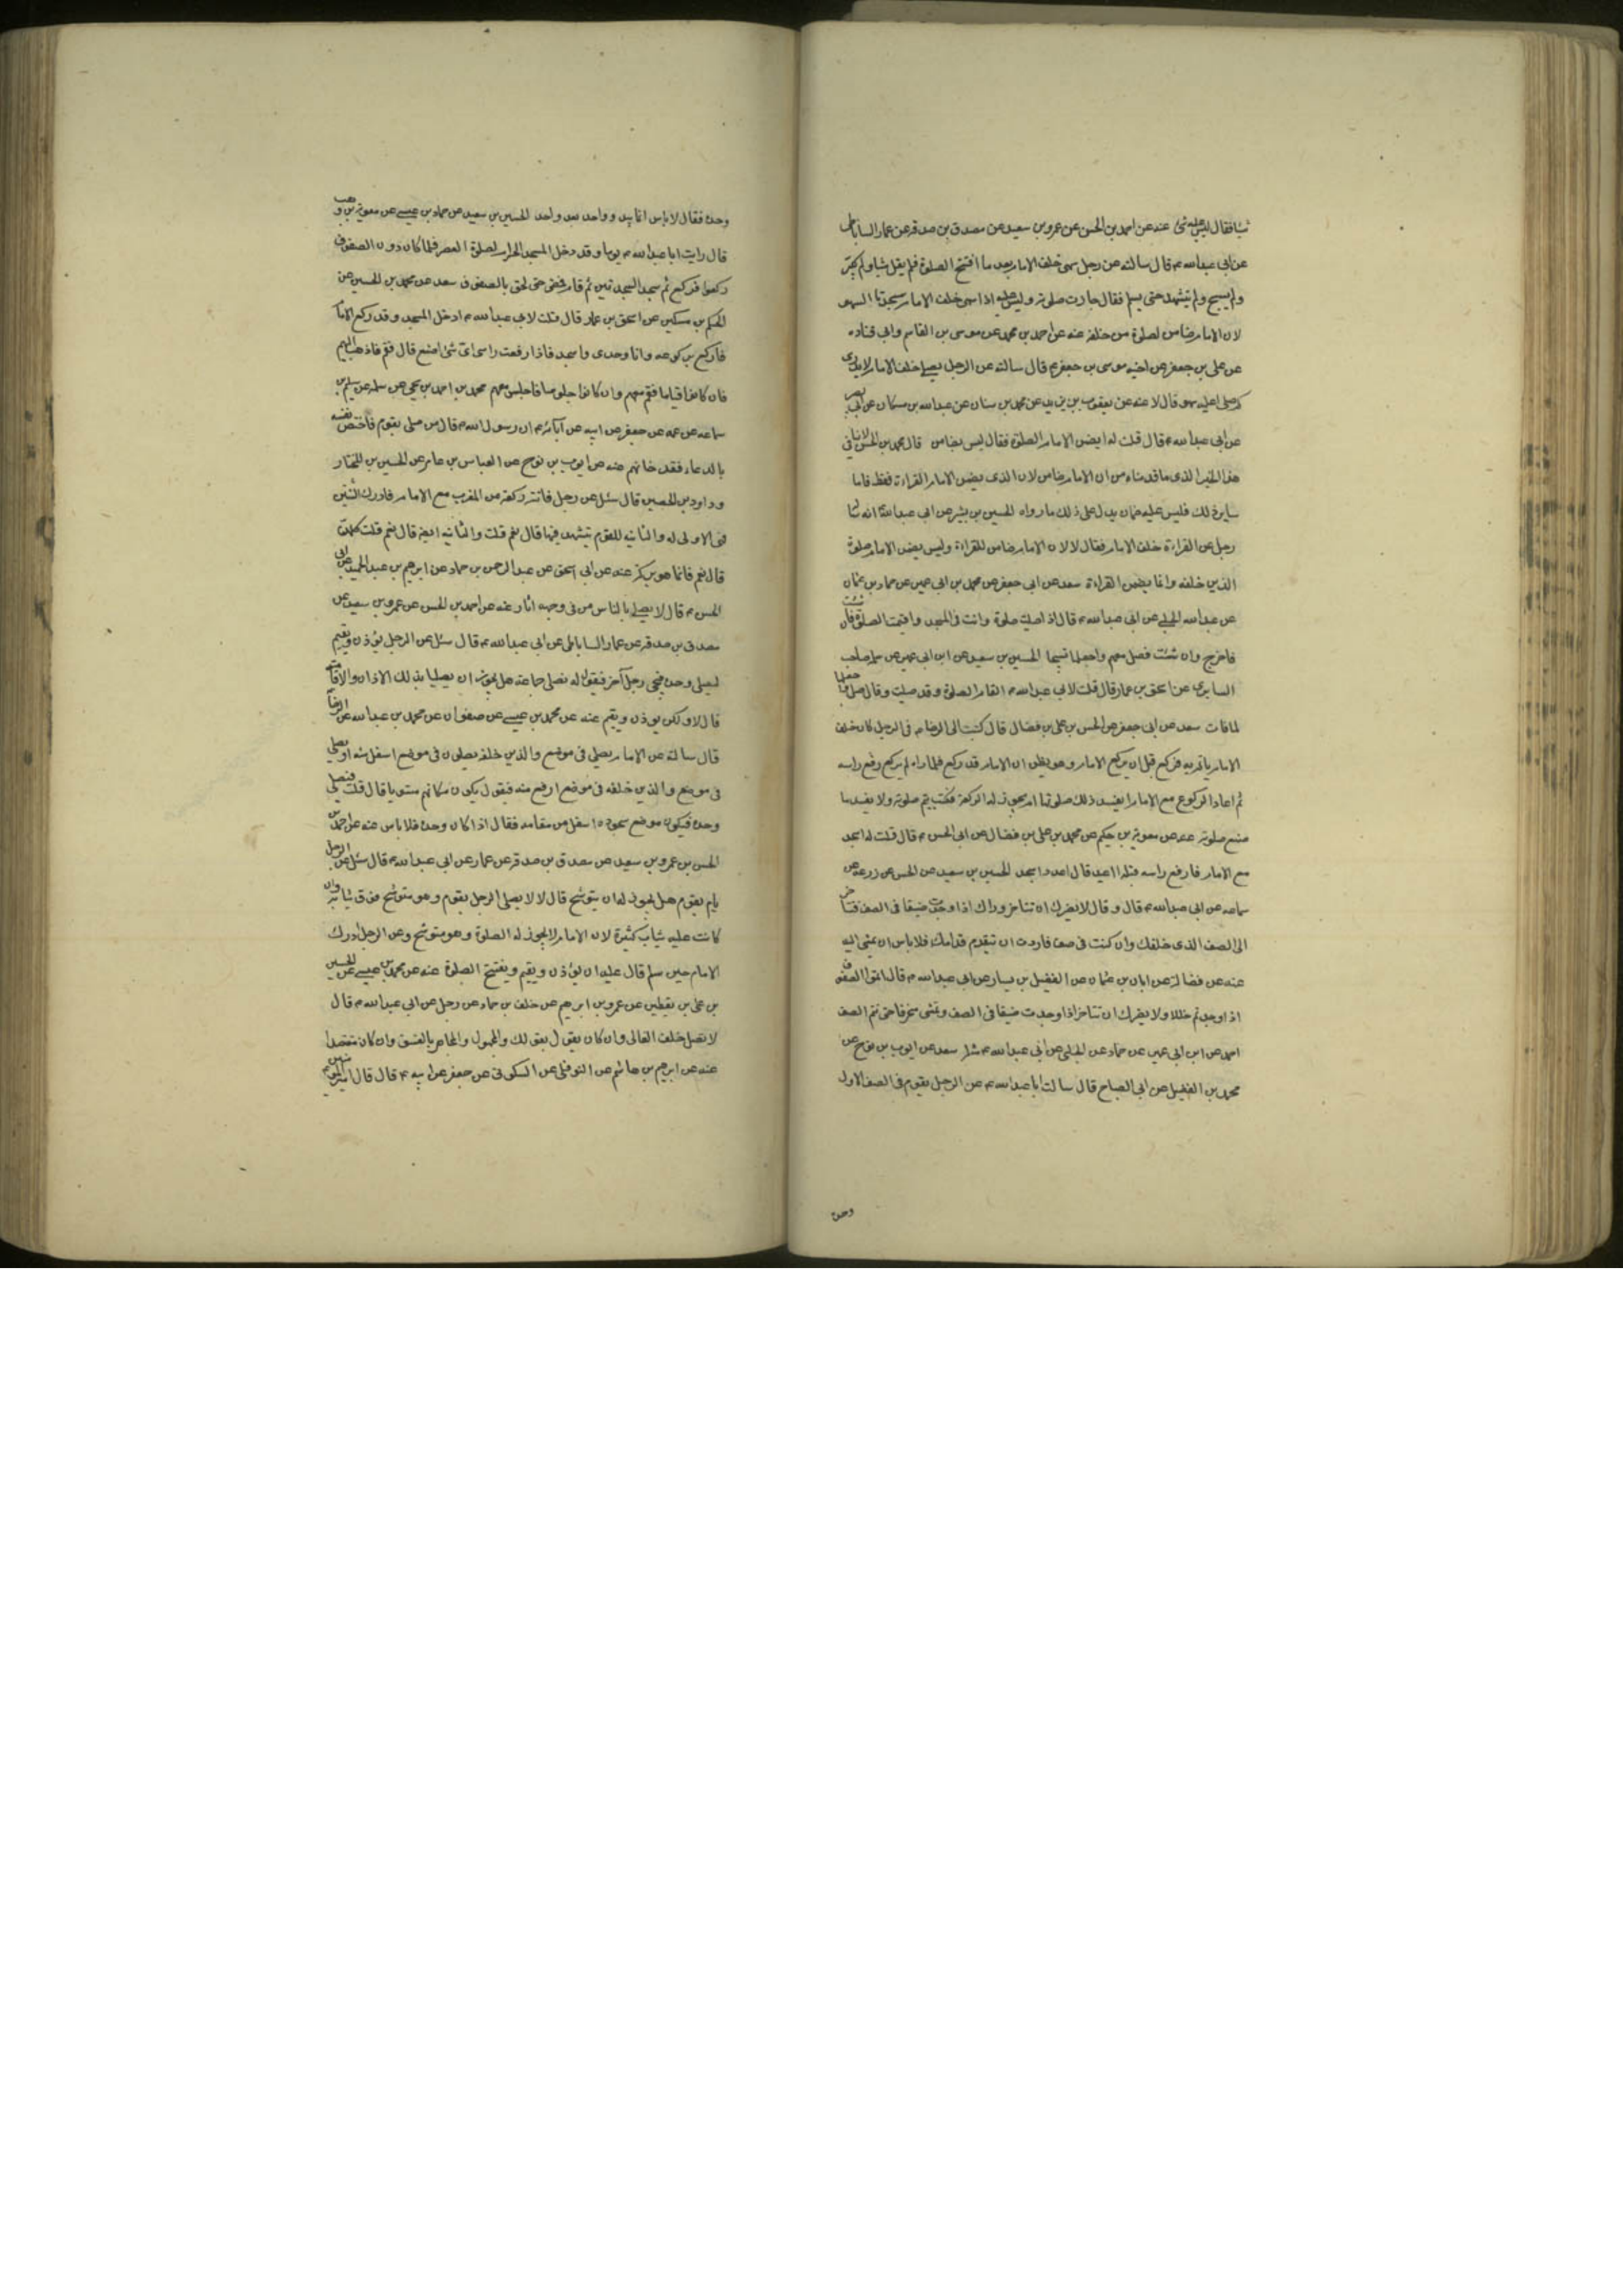 شيئا فقال ليس عليه شئ عنه عن احمد بن الحسن عن عمرو بن سعيد عن مصدق بن صدقه عن عمار الساباطى
عن ابى عبد الله ع قال سالته عن رجل سهى خلف الامام بعد ما افتتح الصلوة فلم يقل شيئا ولم يكبر
ولم يسبح ولم يتشهد حتى يسلم فقال جازت صلوته وليس عليه اذا سهى خلف الامام سجدتا السهو
لان الامام ضامن لصلوة من خلفه عنه عن احمد بن محمد عن موسى بن القاسم وابى قتاده
عن على بن جعفر عن اخيه موسى بن جعفر ع قال سالته عن الرجل يصلى خلف الامام لا يدرى
كم صلى اعليه سهو قال لا عنه عن يعقوب بن يزيد عن محمد بن سنان عن عبد الله بن مسكان عن ابى بصير
عن ابى عبد الله ع قال قلت له ايضمن الامام الصلوة فقال ليس بضامن قال محمد بن الحسن لا ينافى
هذا الخبر الذى ما قدمناه من ان الامام ضامن لان الذى يضمن الامام القراءة فقط فاما
ساير ذلك فليس عليه ضمان يدل على ذلك ما رواه الحسين بن بشير عن ابى عبد الله ع انه سئله
رجل عن القراءة خلف الامام فقال لا لان الامام ضامن للقراءة وليس يضمن الامام صلوة
الذين خلفه وانما يضمن القراءة سعد عن ابى جعفر عن محمد بن ابى عمير عن حماد بن عثمان
عن عبد الله الحلبى عن ابى عبد الله ع قال اذا صليت صلوة وانت فى المسجد واقيمت الصلوة فان شئت
فاخرج وان شئت فصل معهم واجعلها تسبيحا الحسين بن سعيد عن ابن ابى عمير عن سلمة صاحب
السابرى عن اسحق بن عمار قال قلت لابى عبد الله ع القام الصلوة وقد صليت وقال صل واجعلها
لما فات سعد عن ابى جعفر عن الحسن بن على بن فضال قال كتبت الى الرضا ع فى الرجل كان خلف
الامام ياتم به فركع قبل ان يركع الامام وهو يظن ان الامام قد ركع فلما راه لم يركع رفع راسه
ثم اعاد الركوع مع الامام ايفسد ذلك صلوته ام يجوز له الركعة فكتب يتم صلوته ولا يفسد ما
صنع صلوته عنه عن معوية بن حكيم عن محمد بن على بن فضال عن ابى الحسن ع قال قلت له اسجد
مع الامام فارفع راسه قبله ااعيد قال اعد واسجد الحسين بن سعيد عن الحسن عن زرعه عن
سماعه عن ابى عبد الله ع قال وقال لا يضرك ان تتاخر وراك اذا وجدت ضيقا فى الصف فتتاخر
الى الصف الذى خلفك وان كنت فى صف فاردت ان تتقدم قدامك فلا باس ان تمشى اليه
عنه عن فضالة عن ابان بن عثمان عن الفضيل بن يسار عن ابى عبد الله ع قال اتموا الصفوف
اذا وجدتم خللا ولا يضرك ان تتاخر اذا وجدت ضيقا فى الصف وتمشى منحرفا حتى تتم الصف
احمد عن ابن ابى عمير عن حماد عن الحلبى عن ابى عبد الله ع مثله سعد عن ايوب بن نوح عن
محمد بن الفضيل عن ابى الصباح قال سالت ابا عبد الله ع عن الرجل يقوم فى الصف الاول
وحده
وحده فقال لا باس انما يبدو واحد بعد واحد الحسين بن سعيد عن حماد بن عيسى عن معوية بن وهب
قال رايت ابا عبد الله ع يوما وقد دخل المسجد الحرام لصلوة العصر فلما كان دون الصفوف
ركعوا فركع ثم سجد السجدتين ثم قام فمضى حتى لحق بالصفوف سعد عن محمد بن الحسين عن
الحكم بن مسكين عن اسحق بن عمار قال قلت لابى عبد الله ع ادخل المسجد وقد ركع الامام
فاركع بركوعه وانا وحدى واسجد فاذا رفعت راسى اى شئ اصنع قال قم فاذهب اليهم
فان كانوا قياما فقم معهم وان كانوا جلوسا فاجلس معهم محمد بن احمد بن يحيى عن سلمه عن سليمن بن
سماعه عن عمه عن جعفر عن ابيه عن آبائه ع ان رسول الله ص قال من صلى بقوم فاختص نفسه
بالدعاء فقد خانهم عنه عن ايوب بن نوح عن العباس بن عامر عن الحسين بن المختار
وداود بن الحصين قال سئل عن رجل فاتته ركعة من المغرب مع الامام فادرك الثنتين
فهى الاولى له والثانيه للقوم يتشهد فيها قال نعم قلت والثانيه ايضا قال نعم قلت كلهن
قال نعم فانما هو بركة عنه عن ابى اسحق عن عبد الرحمن بن حماد عن ابرهيم بن عبد الحميد عن ابى
الحسن ع قال لا يصلى بالناس من فى وجهه اثار عنه عن احمد بن الحسن عن عمرو بن سعيد عن
مصدق بن صدقه عن عمار الساباطى عن ابى عبد الله ع قال سئل عن الرجل يؤذن ويقيم
ليصلى وحده فيجئ رجل آخر فيقول له نصلى جماعة هل يجوز ان يصليا بذلك الاذان والاقامة
قال لا ولكن يوذن ويقيم عنه عن محمد بن عيسى عن صفوان عن محمد بن عبد الله عن الرضا ع
قال سالته عن الامام يصلى فى موضع والذين خلفه يصلون فى موضع اسفل منه او يصلى
فى موضع والذين خلفه فى موضع ارفع منه فيقول يكون مكانهم مستويا قال قلت فيصلى
وحده فيكون موضع سجوده اسفل من مقامه فقال اذا كان وحده فلا باس عنه عن احمد بن
الحسن بن عمرو بن سعيد عن مصدق بن صدقه عن عمار عن ابى عبد الله ع قال سئل عن الرجل
يام بقوم هل يجوز له ان يتوشح قال لا لا يصلى الرجل بقوم وهو متوشح فوق ثيابه وان
كانت عليه ثياب كثيرة لان الامام لا يجوز له الصلوة وهو متوشح وعن الرجل ادرك
الامام حين سلم قال عليه ان يؤذن ويقيم ويفتتح الصلوة عنه عن محمد بن عيسى عن الحسين
بن على بن يقطين عن عمرو بن ابرهيم عن خلف بن حماد عن رجل عن ابى عبد الله ع قال
لا تصل خلف الغالى وان كان يقول بقولك والمجهول والمجاهر بالفسق وان كان مقتصدا
عنه عن ابرهيم بن هاشم عن النوفلى عن السكونى عن جعفر عن ابيه ع قال قال امير المؤمنين ع